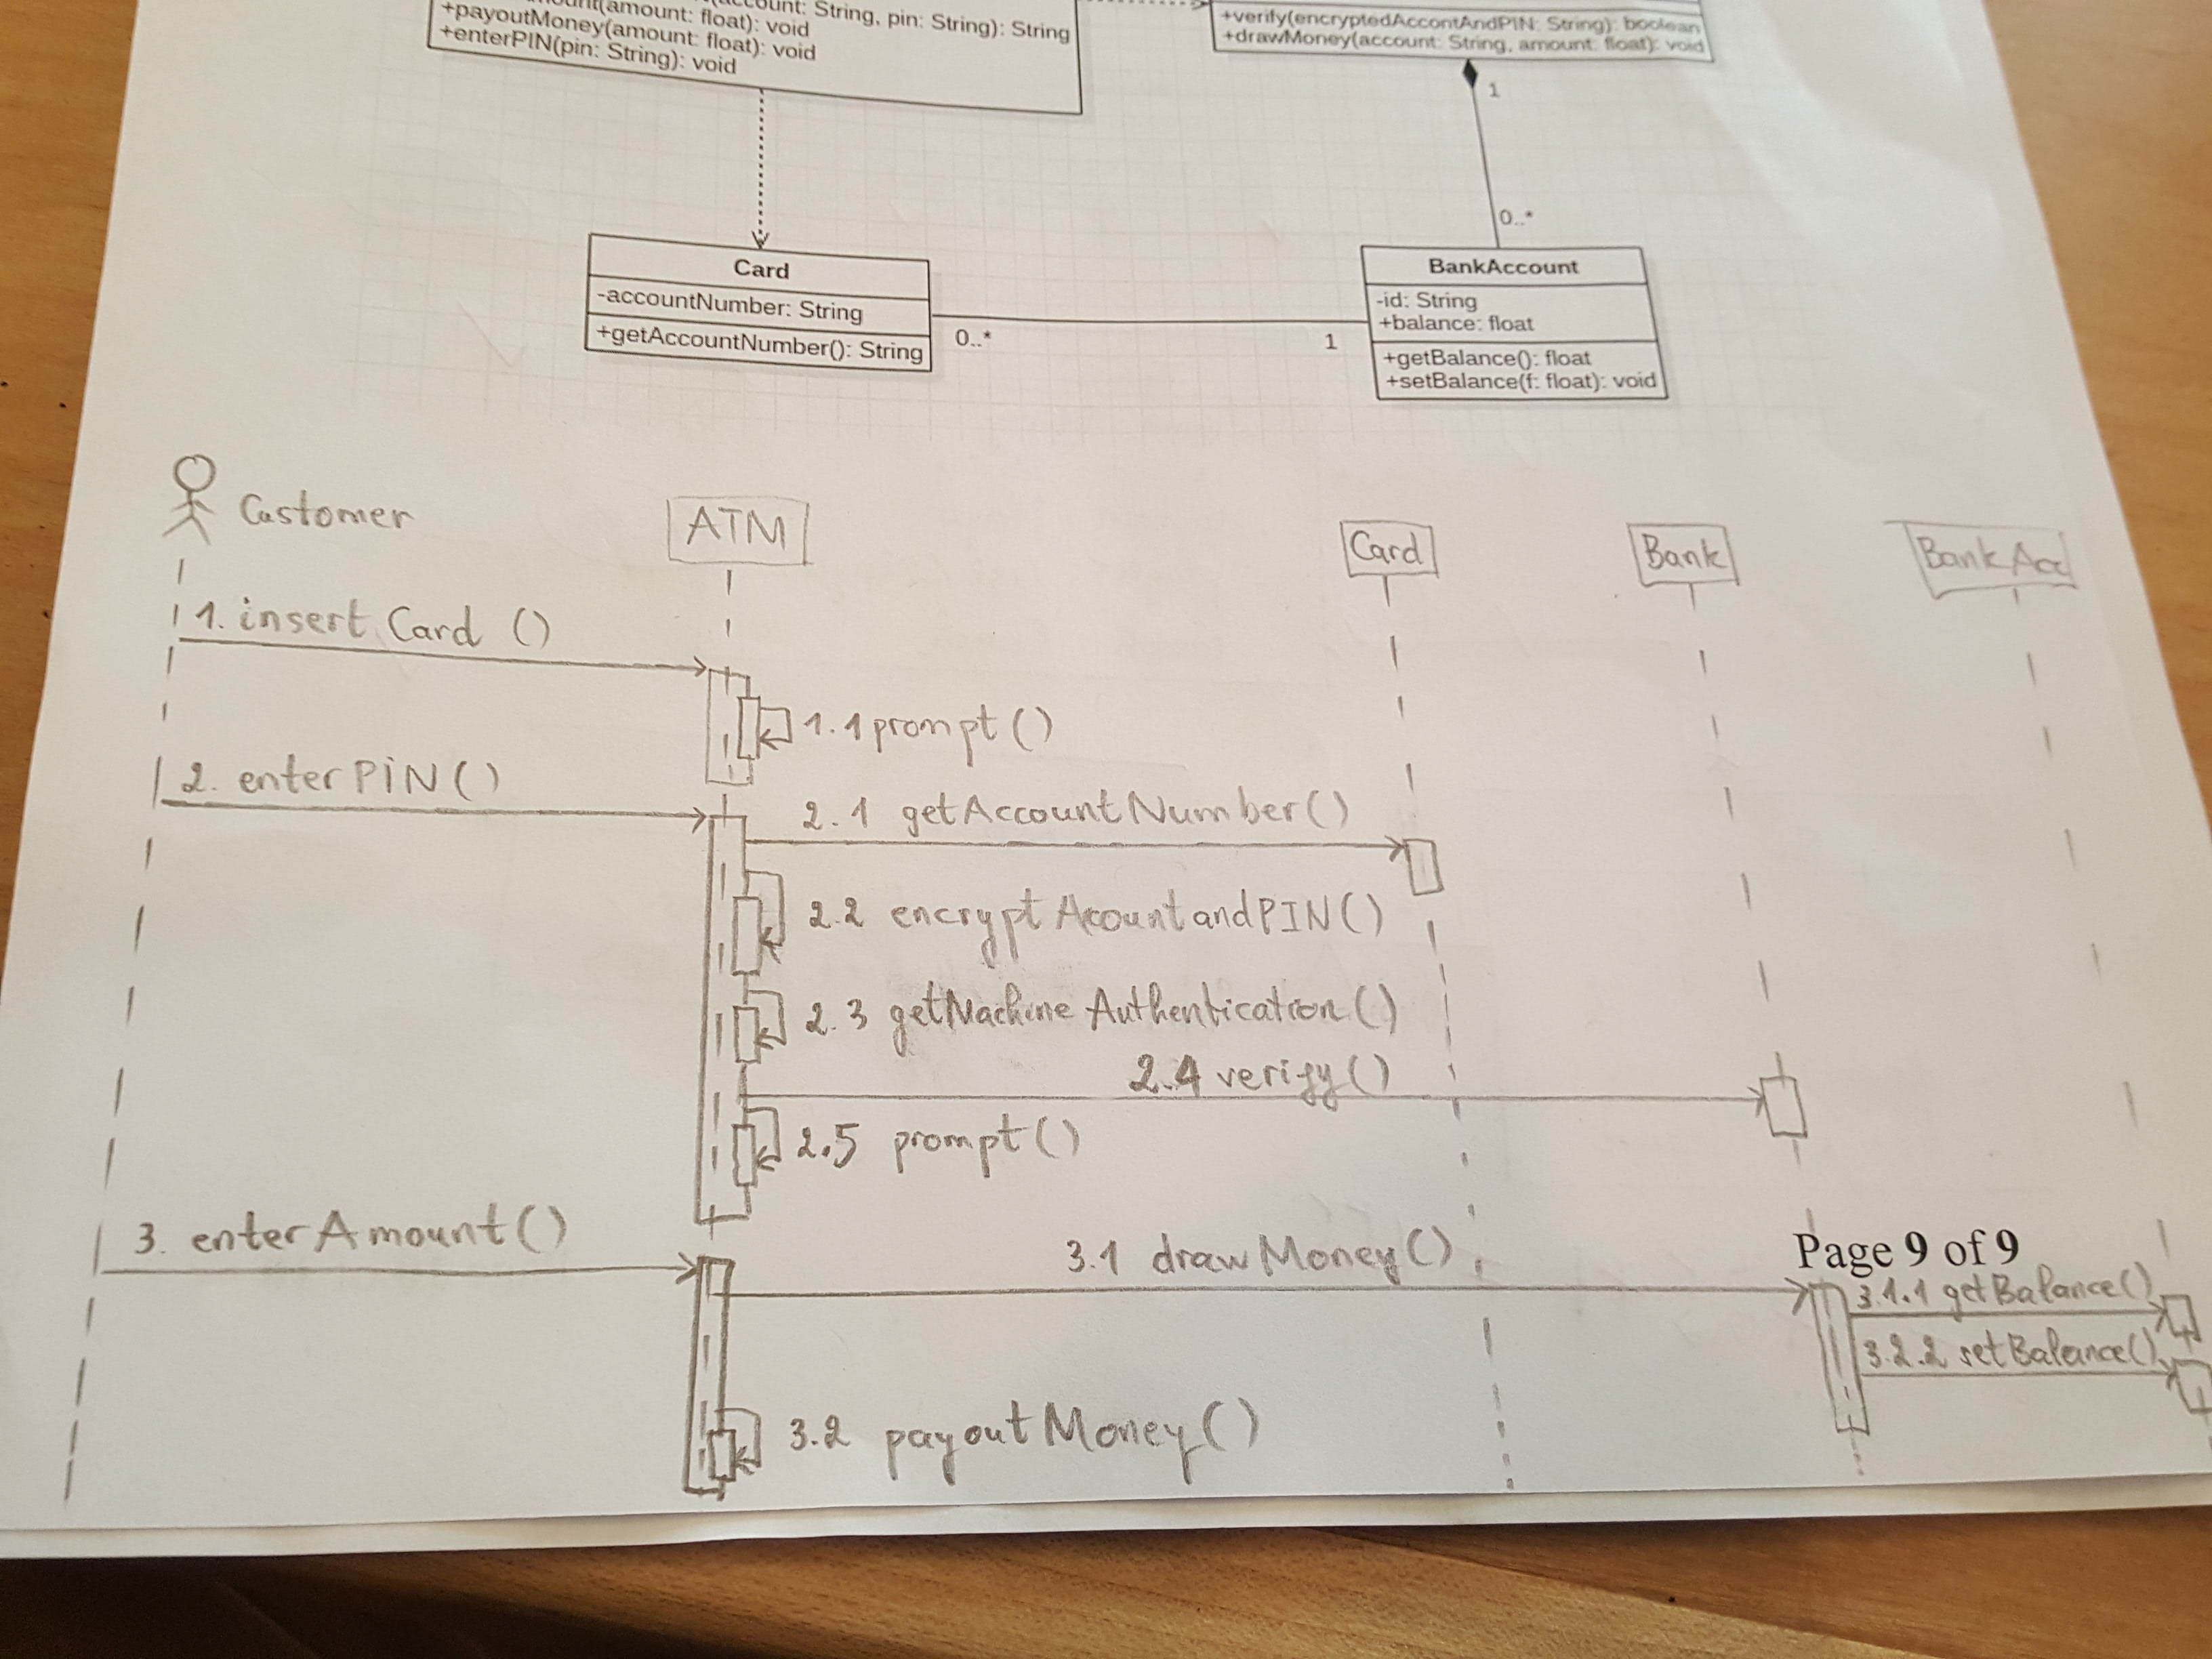 (amount: float): void
+payoutMoney(amount: float): void
+enterPIN(pin: String): void
String, pin: String): String
+verify(encryptedAccontAndPIN: String): boolean
+drawMoney(account: String, amount: float): void
1
0..*
Card
-accountNumber: String
+getAccountNumber(): String
0..*
1
BankAccount
-id: String
+balance: float
+getBalance(): float
+setBalance(f: float): void
Customer
ATM
Card
Bank
BankAcc
1. insertCard ()
1.1 prompt()
2. enterPIN()
2.1 getAccountNumber()
2.2 encryptAcountandPIN()
2.3 getMachineAuthentication()
2.4 verify()
2.5 prompt()
3. enterAmount()
3.1 drawMoney()
Page 9 of 9
3.1.1 getBalance()
3.2.2 setBalance()
3.2 payoutMoney()